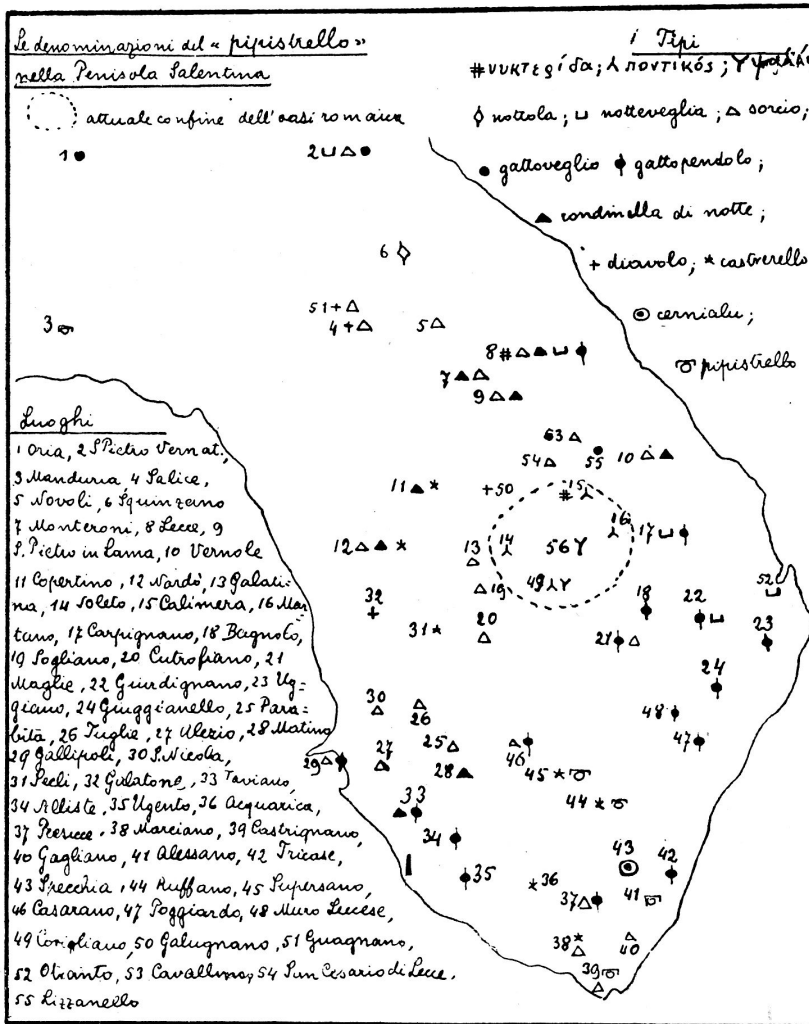 Le denominazioni del «pipistrello»
nella Penisola Salentina
attuale confine dell'oasi romaica
i Tipi
# νυκτερίδα; ⅄ ποντικός; Y
◊ nottola; ⊔ notteveglia; △ sorcio;
● gattoveglio ⏺ gattopendolo;
▲ rondinella di notte;
+ diavolo; * castrerello
◉ cernialu;
pipistrello
1 ●
2 ⊔ △ ●
6 ◊
51 + △
4 + △
5 △
3
8 # △ ▲ ⊔
7 ▲ △
9 △ ▲
63 △
54 △
55
10 △ ▲
11 ▲ *
+ 50
# 15 ⅄
12 △ ▲ *
13
14 ⅄
56 Y
16 ⅄
17 ⊔
49 ⅄ Y
△ 19
52 ⊔
32 +
31 *
20 △
18
22 ⊔
21 △
23
24
30 △
26
48
47
29 △
27
25 △
46
28 ▲
45 *
44 *
33 ▲
34
35
36 *
43 ◉
42
37 △
41
38 * △
40 △
39 △
Luoghi
1 Oria, 2 S Pietro Vernot.,
3 Manduria 4 Salice,
5 Novoli, 6 Squinzano
7 Monteroni, 8 Lecce, 9
S. Pietro in Lama, 10 Vernole
11 Copertino, 12 Nardò, 13 Galati=
na, 14 Soleto, 15 Calimera, 16 Mar
tano, 17 Carpignano, 18 Bagnolo,
19 Sogliano, 20 Cutrofiano, 21
Maglie, 22 Giurdignano, 23 Ug=
giano, 24 Giuggianello, 25 Para=
bita, 26 Tuglie, 27 Alezio, 28 Matino
29 Gallipoli, 30 S. Nicola,
31 Secli, 32 Galatone, 33 Taviano,
34 Alliste, 35 Ugento, 36 Acquarica,
37 Presicce, 38 Morciano, 39 Castrignano,
40 Gagliano, 41 Alessano, 42 Tricase,
43 Specchia, 44 Ruffano, 45 Supersano,
46 Casarano, 47 Poggiardo, 48 Muro Leccese,
49 Corigliano, 50 Galugnano, 51 Guagnano,
52 Otranto, 53 Cavallino, 54 San Cesario di Lecce,
55 Lizzanello